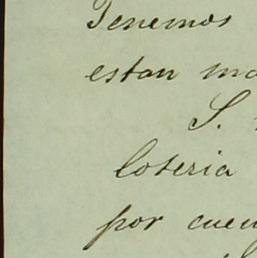 Tenemos
estan ma
S.
loteria
por cuen